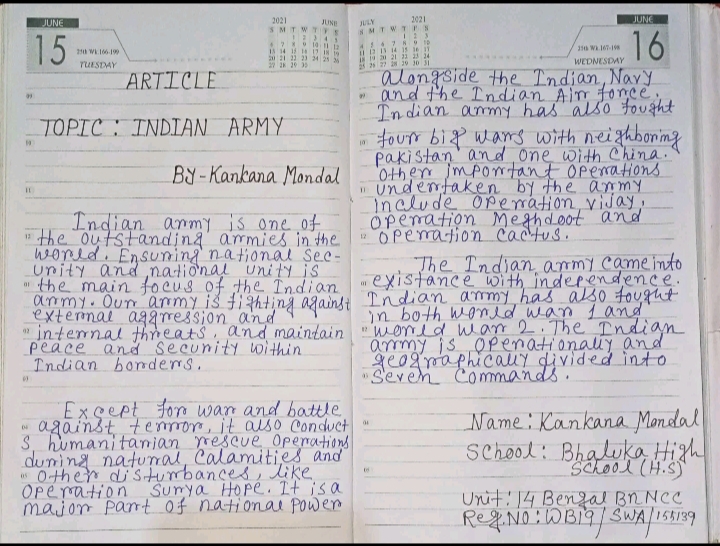 JUNE
15
25th Wk.166-199
TUESDAY
2021 JUNE
S M T W T F S
ARTICLE
TOPIC : INDIAN ARMY
By-Kankana Mondal
Indian army is one of
the outstanding armies in the
world. Ensuring national sec-
urity and national unity is
the main focus of the Indian
army. Our army is fighting against
external aggression and
internal threats, and maintain
peace and security within
Indian borders.
Except for war and battle
against terror, it also conduct
s humanitarian rescue operations
during natural calamities and
other disturbances, like
operation Surya Hope. It is a
major part of national power
JULY 2021
S M T W T F S
JUNE
16
25th Wk.167-198
WEDNESDAY
alongside the Indian Navy
and the Indian Air force.
Indian army has also fought
four big wars with neighboring
Pakistan and one with China.
Other important operations
undertaken by the army
include operation vijay,
operation Meghdoot and
operation Cactus.
The Indian army came into
existance with independence.
Indian army has also fought
in both world war 1 and
world war 2. The Indian
army is operationally and
geographically divided into
Seven Commands.
Name : Kankana Mondal
School : Bhaluka High
School (H.S)
Unit : 14 Bengal Bn NCC
Reg.NO : WB19/SWA/155139